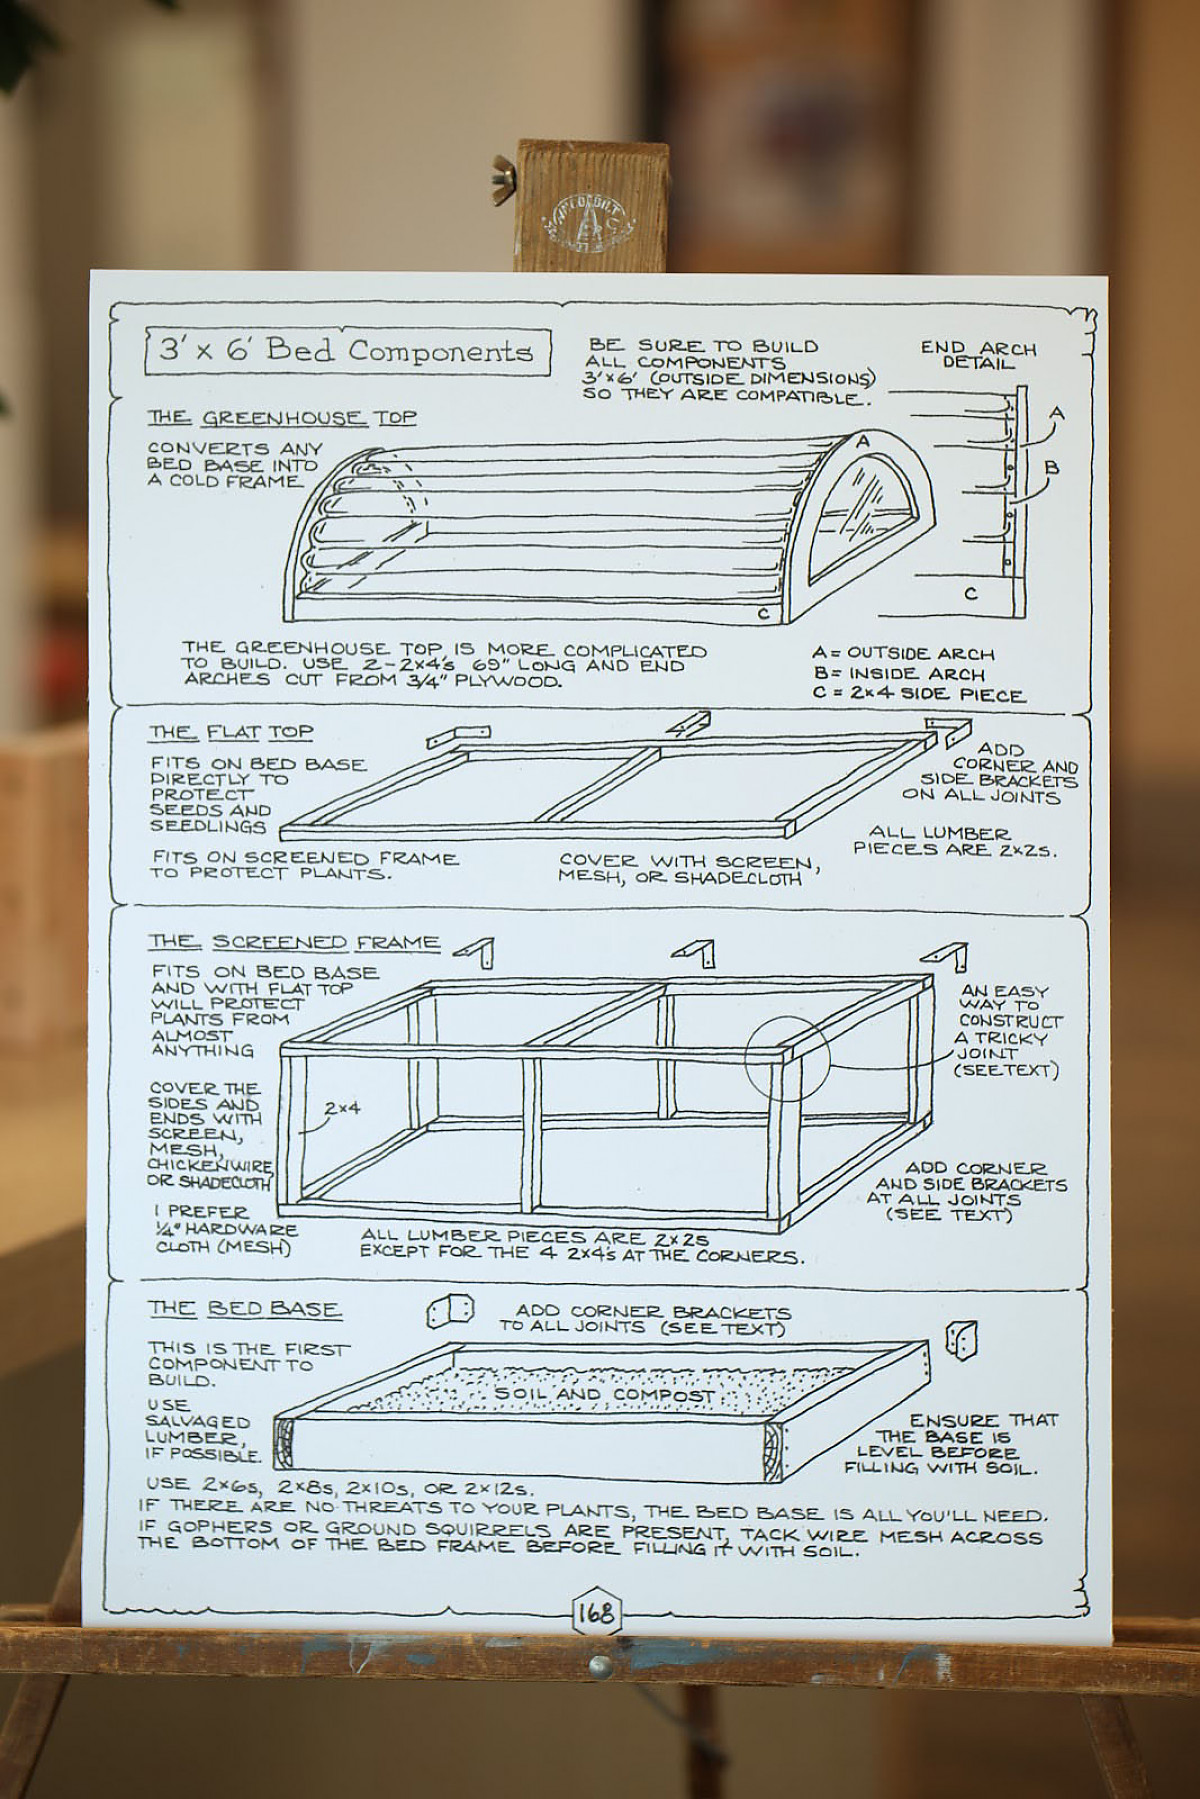 3' x 6' Bed Components
BE SURE TO BUILD
ALL COMPONENTS
3'x6' (OUTSIDE DIMENSIONS)
SO THEY ARE COMPATIBLE.
END ARCH
DETAIL
THE GREENHOUSE TOP
CONVERTS ANY
BED BASE INTO
A COLD FRAME
A
A
B
C
C
THE GREENHOUSE TOP IS MORE COMPLICATED
TO BUILD. USE 2-2x4's 69" LONG AND END
ARCHES CUT FROM 3/4" PLYWOOD.
A = OUTSIDE ARCH
B = INSIDE ARCH
C = 2x4 SIDE PIECE
THE FLAT TOP
FITS ON BED BASE
DIRECTLY TO
PROTECT
SEEDS AND
SEEDLINGS
FITS ON SCREENED FRAME
TO PROTECT PLANTS.
COVER WITH SCREEN,
MESH, OR SHADECLOTH
ADD
CORNER AND
SIDE BRACKETS
ON ALL JOINTS
ALL LUMBER
PIECES ARE 2x2s.
THE SCREENED FRAME
FITS ON BED BASE
AND WITH FLAT TOP
WILL PROTECT
PLANTS FROM
ALMOST
ANYTHING
COVER THE
SIDES AND
ENDS WITH
SCREEN,
MESH,
CHICKENWIRE,
OR SHADECLOTH
I PREFER
1/4" HARDWARE
CLOTH (MESH)
2x4
AN EASY
WAY TO
CONSTRUCT
A TRICKY
JOINT
(SEE TEXT)
ADD CORNER
AND SIDE BRACKETS
AT ALL JOINTS
(SEE TEXT)
ALL LUMBER PIECES ARE 2x2s
EXCEPT FOR THE 4 2x4's AT THE CORNERS.
THE BED BASE
ADD CORNER BRACKETS
TO ALL JOINTS (SEE TEXT)
THIS IS THE FIRST
COMPONENT TO
BUILD.
USE
SALVAGED
LUMBER,
IF POSSIBLE.
SOIL AND COMPOST
ENSURE THAT
THE BASE IS
LEVEL BEFORE
FILLING WITH SOIL.
USE 2x6s, 2x8s, 2x10s, OR 2x12s.
IF THERE ARE NO THREATS TO YOUR PLANTS, THE BED BASE IS ALL YOU'LL NEED.
IF GOPHERS OR GROUND SQUIRRELS ARE PRESENT, TACK WIRE MESH ACROSS
THE BOTTOM OF THE BED FRAME BEFORE FILLING IT WITH SOIL.
168